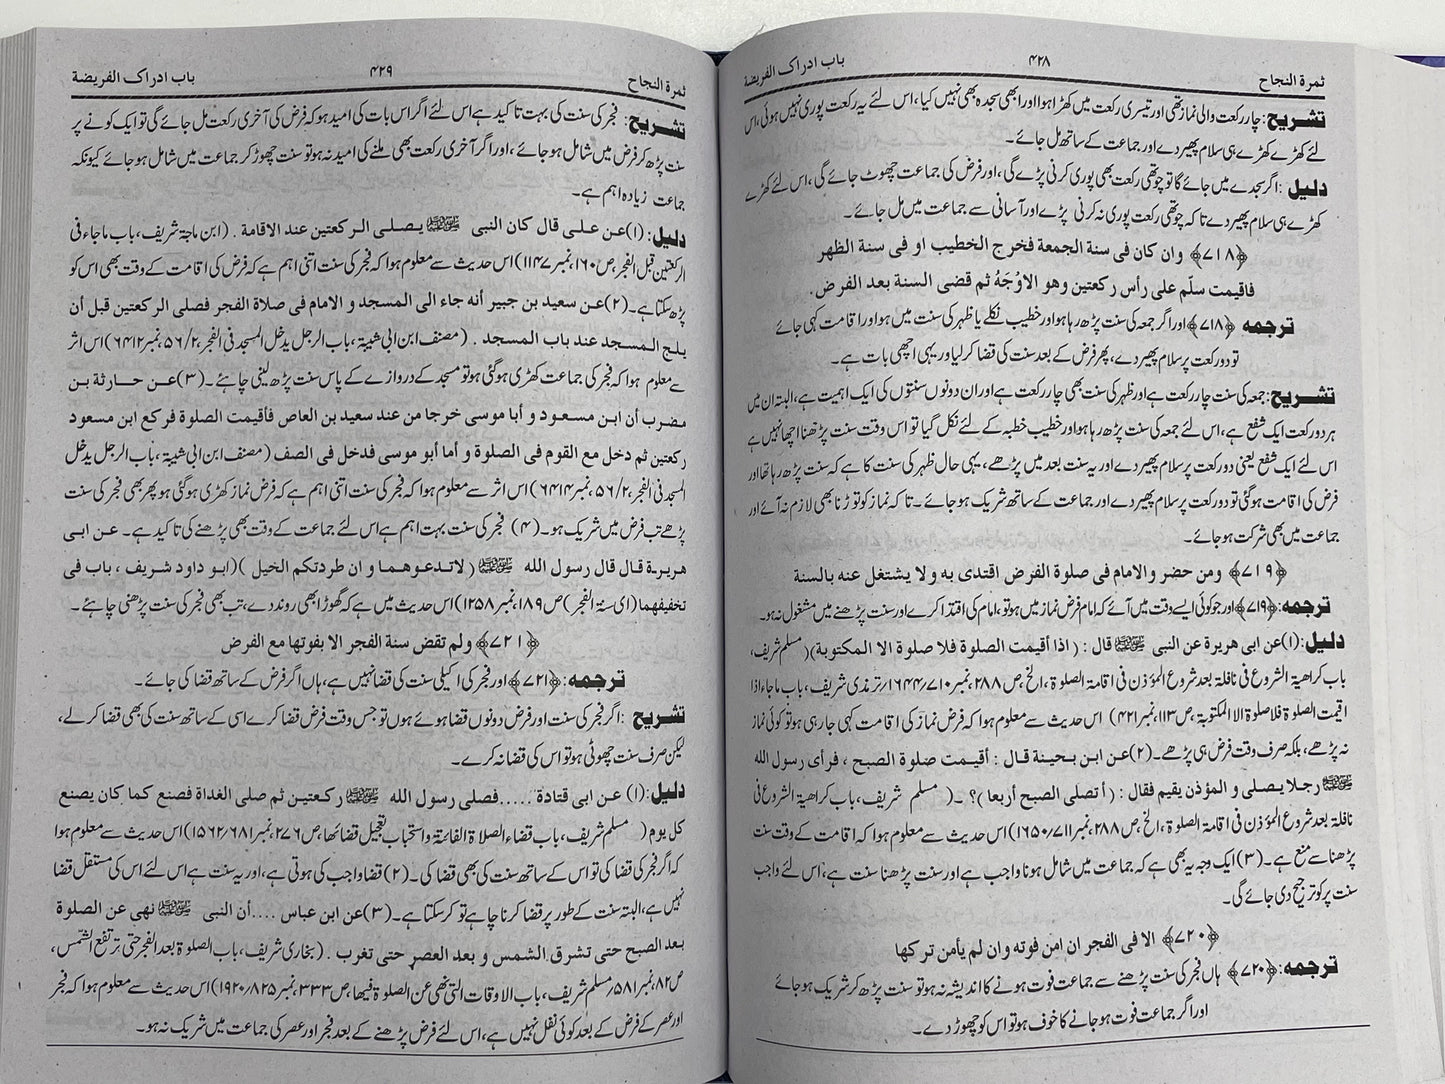 ثمرة النجاح ۴۲۸ باب ادراک الفریضة
تشریح: چار رکعت والی نماز تھی اور تیسری رکعت میں کھڑا ہوا اور ابھی سجدہ بھی نہیں کیا، اس لئے یہ رکعت پوری نہیں ہوئی، اس
لئے کھڑے کھڑے ہی سلام پھیر دے اور جماعت کے ساتھ مل جائے۔
دلیل: اگر سجدے میں جائے گا تو چوتھی رکعت بھی پوری کرنی پڑے گی، اور فرض کی جماعت چھوٹ جائے گی، اس لئے کھڑے
کھڑے ہی سلام پھیر دے تا کہ چوتھی رکعت پوری نہ کرنی پڑے اور آسانی سے جماعت میں مل جائے۔
﴿۷۱۸﴾ وان کان فی سنة الجمعة فخرج الخطیب او فی سنة الظهر
فاقیمت سلّم علی رأس رکعتین وهو الاوْجَهُ ثم قضی السنة بعد الفرض.
ترجمه ﴿۷۱۸﴾ اور اگر جمعہ کی سنت پڑھ رہا ہو اور خطیب نکلے یا ظہر کی سنت میں ہو اور اقامت کہی جائے
تو دو رکعت پر سلام پھیر دے، پھر فرض کے بعد سنت کی قضا کرلیا اور یہی اچھی بات ہے۔
تشریح: جمعہ کی سنت چار رکعت ہے اور ظہر کی سنت بھی چار رکعت ہے اور ان دونوں سنتوں کی ایک اہمیت ہے، البتہ ان میں
ہر دو رکعت ایک شفع ہے، اس لئے جمعہ کی سنت پڑھ رہا ہو اور خطیب خطبہ کے لئے نکل گیا تو اس وقت سنت پڑھنا اچھا نہیں ہے
اس لئے ایک شفع یعنی دو رکعت پر سلام پھیر دے اور یہ سنت بعد میں پڑھے، یہی حال ظہر کی سنت کا ہے کہ سنت پڑھ رہا تھا اور
فرض کی اقامت ہوگئی تو دو رکعت پر سلام پھیر دے اور جماعت کے ساتھ شریک ہو جائے۔ تا کہ نماز کو توڑنا بھی لازم نہ آئے اور
جماعت میں بھی شرکت ہو جائے۔
﴿۷۱۹﴾ ومن حضر والامام فی صلوة الفرض اقتدی به ولا یشتغل عنه بالسنة
ترجمه: ﴿۷۱۹﴾ اور جو کوئی ایسے وقت میں آئے کہ امام فرض نماز میں ہو تو، امام کی اقتدا کرے اور سنت پڑھنے میں مشغول نہ ہو۔
دلیل: (۱) عن ابی هریرة عن النبی ﷺ قال: (اذا أقیمت الصلوة فلا صلوة الا المکتوبة) (مسلم شریف،
باب کراھیة الشروع فی نافلة بعد شروع المؤذن فی اقامة الصلوة، الخ، ص ۲۸۸، نمبر ۷۱۰؍۱۶۴۴؍ ترمذی شریف، باب ماجاء اذا
اقیمت الصلوة فلا صلوة الا المکتوبة، ص ۱۱۳، نمبر ۴۲۱) اس حدیث سے معلوم ہوا کہ فرض نماز کی اقامت کہی جا رہی ہو تو کوئی نماز
نہ پڑھے، بلکہ صرف وقت فرض ہی پڑھے۔ (۲) عن ابن بحینة قال: أقیمت صلوة الصبح، فرأی رسول الله
ﷺ رجلا یصلی و المؤذن یقیم فقال: (أتصلی الصبح أربعا)؟ ۔( مسلم شریف، باب کراھیة الشروع فی
نافلة بعد شروع المؤذن فی اقامة الصلوة، الخ، ص ۲۸۸، نمبر ۷۱۱؍۱۶۵۰) اس حدیث سے معلوم ہوا کہ اقامت کے وقت سنت
پڑھنا سے منع ہے۔ (۳) ایک وجہ یہ بھی ہے کہ جماعت میں شامل ہونا واجب ہے اور سنت پڑھنا سنت ہے، اس لئے واجب
سنت پر کو ترجیح دی جائے گی۔
﴿۷۲۰﴾ الا فی الفجر ان امن فوته وان لم یأمن ترکها
ترجمه: ﴿۷۲۰﴾ ہاں فجر کی سنت پڑھنے سے جماعت فوت ہونے کا اندیشہ نہ ہو تو سنت پڑھ کر شریک ہو جائے
اور اگر جماعت فوت ہو جانے کا خوف ہو تو اس کو چھوڑ دے۔
ثمرة النجاح ۴۲۹ باب ادراک الفریضة
تشریح: فجر کی سنت کی بہت تاکید ہے اس لئے اگر اس بات کی امید ہو کہ فرض کی آخری رکعت مل جائے گی تو ایک کونے پر
سنت پڑھ کر فرض میں شامل ہو جائے، اور اگر آخری رکعت بھی ملنے کی امید نہ ہو تو سنت چھوڑ کر جماعت میں شامل ہو جائے کیونکہ
جماعت زیادہ اہم ہے۔
دلیل: (۱) عن علی قال کان النبی ﷺ یصلی الرکعتین عند الاقامة . (ابن ماجة شریف، باب ماجاء فی
الرکعتین قبل الفجر، ص ۱۶۰، نمبر ۱۱۴۷) اس حدیث سے معلوم ہوا کہ فجر کی سنت اتنی اہم ہے کہ فرض کی اقامت کے وقت بھی اس کو
پڑھ سکتا ہے۔ (۲) عن سعید بن جبیر أنه جاء الی المسجد و الامام فی صلاة الفجر فصلی الرکعتین قبل أن
یلج المسجد عند باب المسجد . (مصنف ابن ابی شیبة، باب الرجل یدخل المسجد فی الفجر، ۲؍ ۵۶، نمبر ۶۴۱۲) اس اثر
سے معلوم ہوا کہ فجر کی جماعت کھڑی ہو گئی ہو تو مسجد کے دروازے کے پاس سنت پڑھ لینی چاہئے۔ (۳) عن حارثة بن
مضرب أن ابن مسعود و أبا موسی خرجا من عند سعید بن العاص فأقیمت الصلوة فرکع ابن مسعود
رکعتین ثم دخل مع القوم فی الصلوة و أما أبو موسی فدخل فی الصف (مصنف ابن ابی شیبة، باب الرجل یدخل
المسجد فی الفجر، ۲؍ ۵۶، نمبر ۶۴۱۴) اس اثر سے معلوم ہوا کہ فجر کی سنت اتنی اہم ہے کہ فرض نماز کھڑی ہو گئی ہو پھر بھی فجر کی سنت
پڑھے تب فرض میں شریک ہو۔ (۴) فجر کی سنت بہت اہم ہے اس لئے جماعت کے وقت بھی پڑھنے کی تاکید ہے۔ عن ابی
هریرة قال قال رسول الله ﷺ (لا تدعوهما و ان طردتکم الخیل) (ابو داود شریف، باب فی
تخفیفهما (ای سنة الفجر) ص ۱۸۹، نمبر ۱۲۵۸) اس حدیث میں ہے کہ گھوڑا بھی روند دے، تب بھی فجر کی سنت پڑھنی چاہئے۔
﴿۷۲۱﴾ ولم تقض سنة الفجر الا بفوتها مع الفرض
ترجمه: ﴿۷۲۱﴾ اور فجر کی اکیلی سنت کی قضا نہیں ہے، ہاں اگر فرض کے ساتھ قضا کی جائے۔
تشریح: اگر فجر کی سنت اور فرض دونوں قضا ہوئے ہوں تو جس وقت فرض قضا کرے اسی کے ساتھ سنت کی بھی قضا کر لے،
لیکن صرف سنت چھوٹی ہو تو اس کی قضا نہ کرے۔
دلیل: (۱) عن ابی قتادة .....فصلی رسول الله ﷺ رکعتین ثم صلی الغداة فصنع کما کان یصنع
کل یوم ( مسلم شریف، باب قضاء الصلاة الفائتة واستحباب تعجیل قضائها، ص ۲۷۶، نمبر ۶۸۱؍۱۵۶۲) اس حدیث سے معلوم ہوا
کہ اگر فجر کی قضا کی تو اس کے ساتھ سنت کی بھی قضا کی۔ (۲) قضا واجب کی ہوتی ہے، اور یہ سنت ہے اس لئے اس کی مستقل قضا
نہیں ہے، البتہ سنت کے طور پر قضا کرنا چاہے تو کر سکتا ہے۔ (۳) عن ابن عباس ....أن النبی ﷺ نهی عن الصلوة
بعد الصبح حتی تشرق الشمس و بعد العصر حتی تغرب . (بخاری شریف، باب الصلوة بعد الفجر حتی ترتفع الشمس،
ص ۸۲، نمبر ۵۸۱؍ مسلم شریف، باب الاوقات التی نھی عن الصلوة فیھا، ص ۳۳۳، نمبر ۸۲۵؍۱۹۲۰) اس حدیث سے معلوم ہوا کہ فجر
اور عصر کے فرض کے بعد کوئی نفل نہیں ہے، اس لئے فرض پڑھنے کے بعد فجر اور عصر کی جماعت میں شریک نہ ہو۔